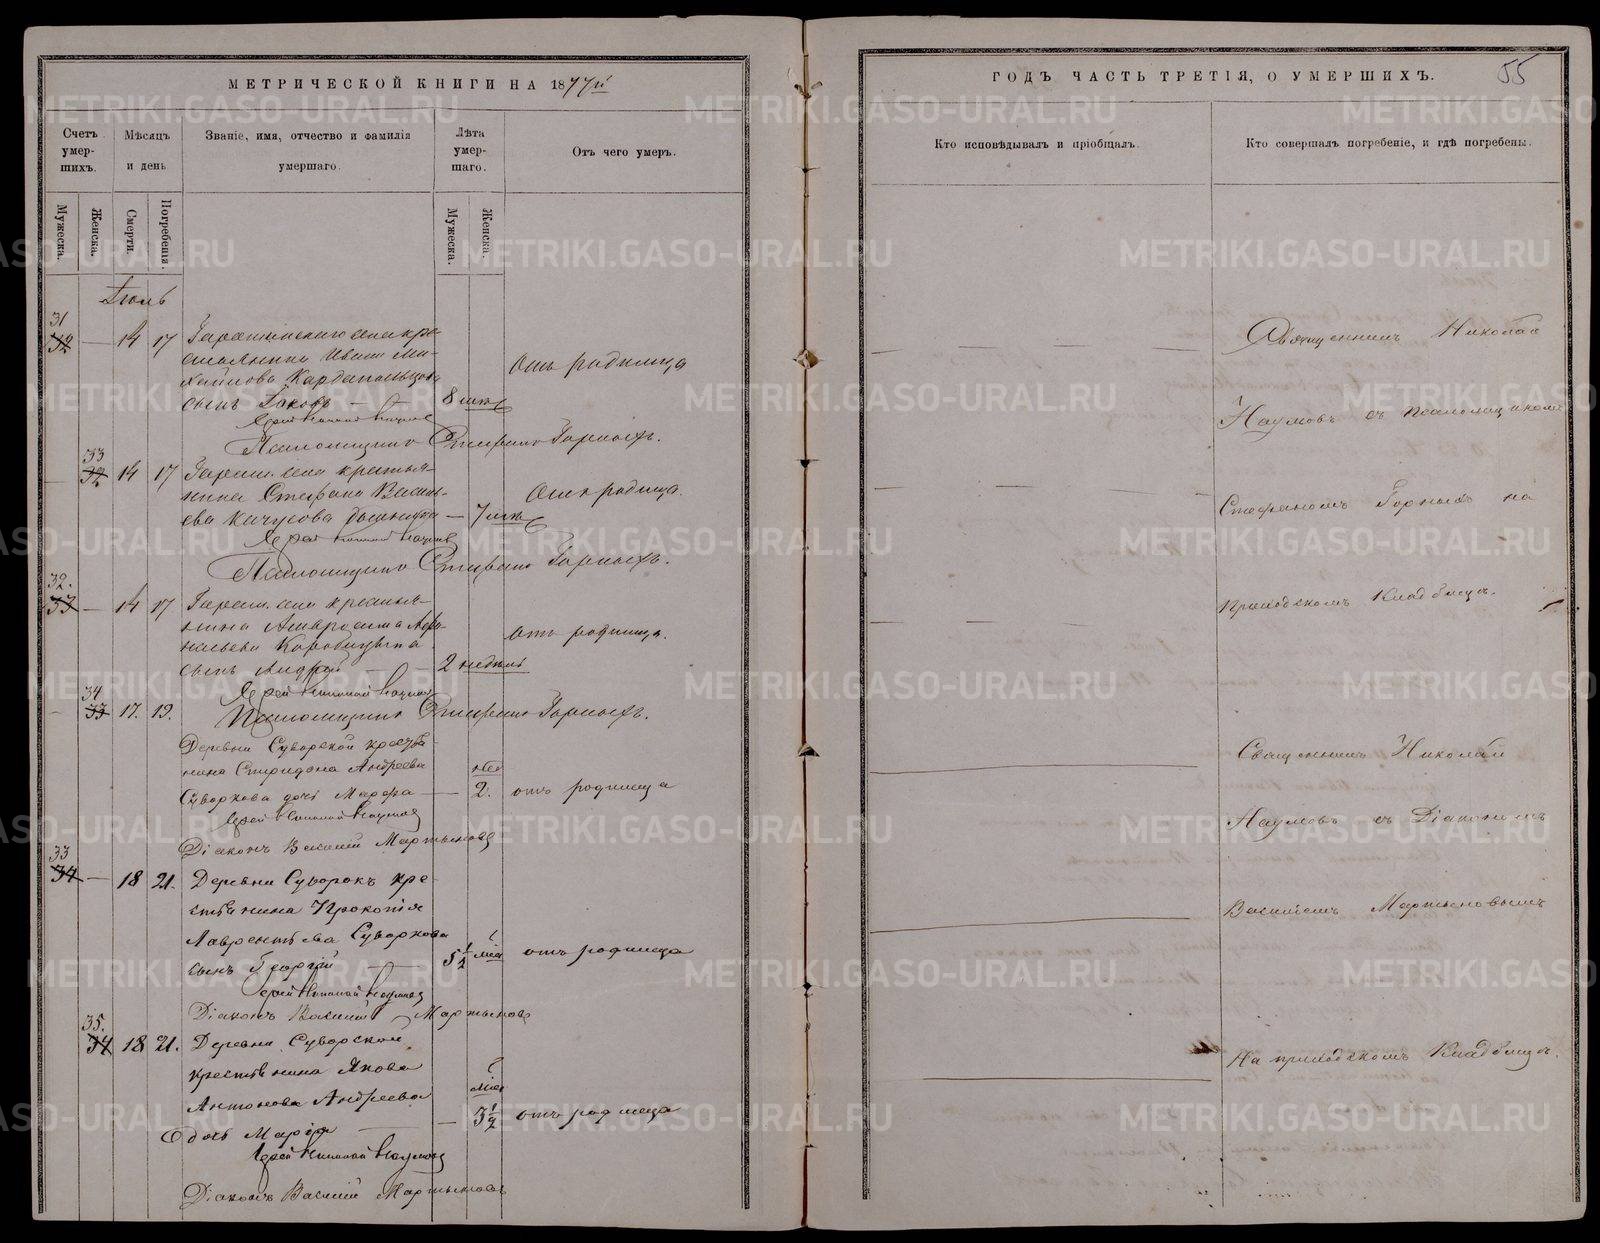 МЕТРИЧЕСКОЙ КНИГИ НА 1877й
Счетъ умер- шихъ.
Мѣсяцъ и день
Званіе, имя, отчество и фамилія умершаго.
Лѣта умер- шаго.
Отъ чего умеръ.
Мужеска.
Женска.
Смерти.
Погребенія.
Мужеска.
Женска.
Іюль
31
32 — 14 17 села кре-
стьянина Ивана Ми-
хайлова
сынъ Іаковъ — 8
отъ родимца
Іерей Николай Наумовъ
Псаломщикъ Стефанъ Горныхъ.
33
32 14 17 села крестья-
нина Стефана Василь-
ева — 7
отъ родимца.
Іерей Николай Наумовъ
Псаломщикъ Стефанъ Горныхъ.
32.
33 — 14 17 села крестья-
нина
сынъ Андрей — 2 недѣль
отъ родимца.
Іерей Николай Наумовъ
Псаломщикъ Стефанъ Горныхъ.
34
33 17. 19.
Деревни Суворской крестья-
нина Спиридона Андреева
Суворкова дочь Марфа — 2. отъ родимца
Іерей Николай Наумовъ
Діаконъ Василій Мартыновъ
33
34 — 18 21. Деревни Суворокъ кре-
стьянина Прокопія
Лаврентьева Суворкова
сынъ Георгій — 5 1/2 мѣс отъ родимца
Іерей Николай Наумовъ
Діаконъ Василій Мартыновъ
35.
34 18 21. Деревни Суворской
крестьянина Якова
Антонова Андреева
дочь Марія — мѣс 3 1/2 отъ родимца
Іерей Николай Наумовъ
Діаконъ Василій Мартыновъ
ГОДЪ ЧАСТЬ ТРЕТІЯ, О УМЕРШИХЪ.
55
Кто исповѣдывалъ и пріобщалъ.
Кто совершалъ погребеніе, и гдѣ погребены.
Священникъ Николай
Наумовъ съ псаломщикомъ
Стефаномъ Горныхъ на
приходскомъ кладбищѣ.
Священникъ Николай
Наумовъ съ Діакономъ
Василіемъ Мартыновымъ
На приходскомъ кладбищѣ.
METRIKI.GASO-URAL.RU